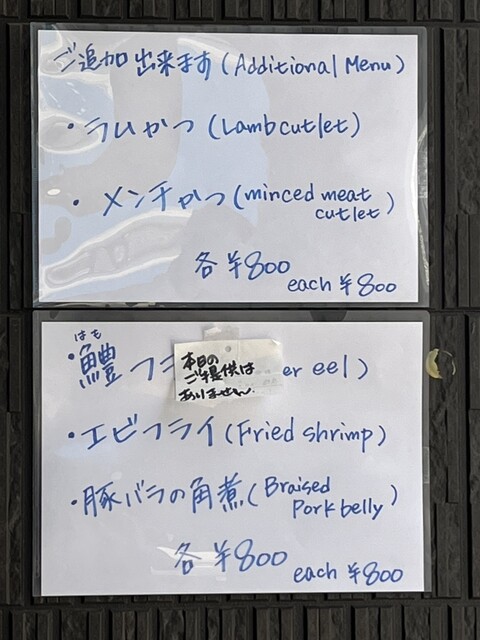 ご追加出来ます(Additional Menu)
・ラムかつ(Lamb cutlet)
・メンチかつ(minced meat
cutlet)
各¥800
each ¥800
はも
・鱧フラ
er eel)
本日の
ご提供は
ありません。
・エビフライ(Fried shrimp)
・豚バラの角煮(Braised
Pork belly)
各¥800
each ¥800